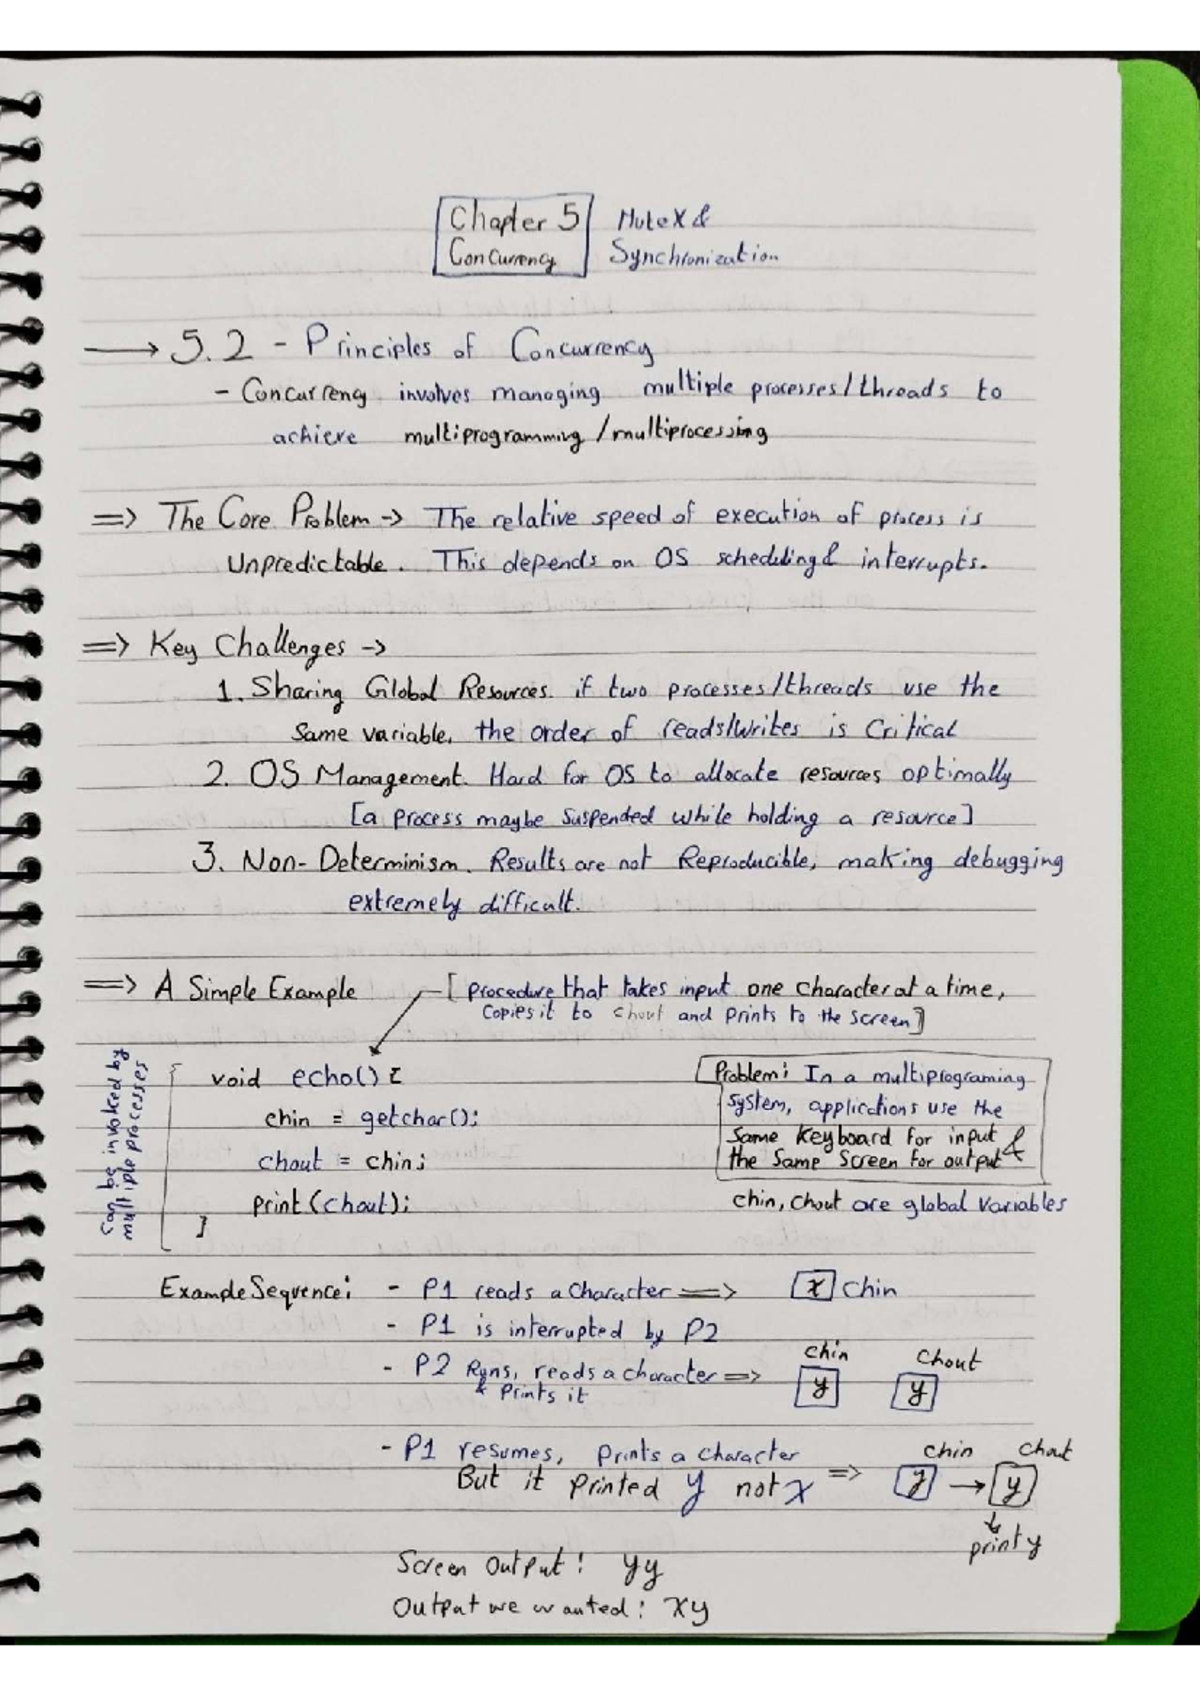 Chapter 5 Mutex &
Concurrency Synchronization
→ 5.2 - Principles of Concurrency
- Concurrency involves managing multiple processes/threads to
achieve multiprogramming/multiprocessing
=> The Core Problem -> The relative speed of execution of process is
unpredictable. This depends on OS scheduling & interrupts.
=> Key Challenges ->
1. Sharing Global Resources. if two processes/threads use the
Same variable, the order of reads/writes is Critical
2. OS Management. Hard for OS to allocate resources optimally
[a process maybe suspended while holding a resource]
3. Non-Determinism. Results are not Reproducible, making debugging
extremely difficult.
=> A Simple Example [procedure that takes input one character at a time,
copies it to chout and prints to the screen]
can be invoked by
multiple processes
void echo() {
chin = getchar();
chout = chin;
print(chout);
}
Problem: In a multiprograming
system, applications use the
same keyboard for input &
the same screen for output
chin, chout are global variables
Example Sequence: - P1 reads a character => x chin
- P1 is interrupted by P2
- P2 Runs, reads a character =>
& prints it
chin chout
y y
- P1 resumes, prints a character
But it printed y not x =>
chin chout
y → y
print y
Screen Output: yy
Output we wanted: xy